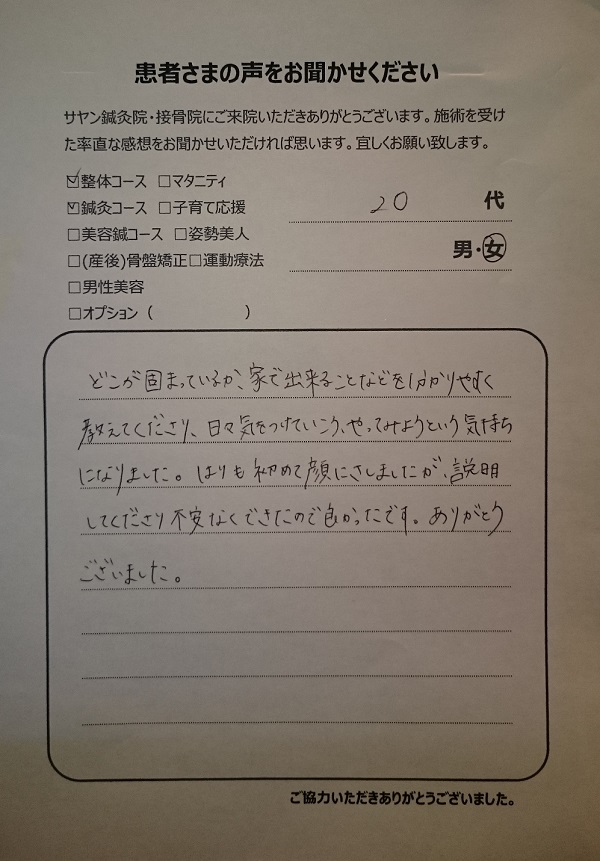 患者さまの声をお聞かせください
サヤン鍼灸院・接骨院にご来院いただきありがとうございます。施術を受け
た率直な感想をお聞かせいただければ思います。宜しくお願い致します。
☑整体コース □マタニティ
☑鍼灸コース □子育て応援
□美容鍼コース □姿勢美人
□(産後)骨盤矯正□運動療法
□男性美容
□オプション（　　　　　　）
20 代
男・女
どこが固まっているか、家で出来ることなどを分かりやすく
教えてくださり、日々気をつけていこう、やってみようという気持ち
になりました。はりも初めて顔にさしましたが、説明
してくださり不安なくできたので良かったです。ありがとう
ございました。
ご協力いただきありがとうございました。